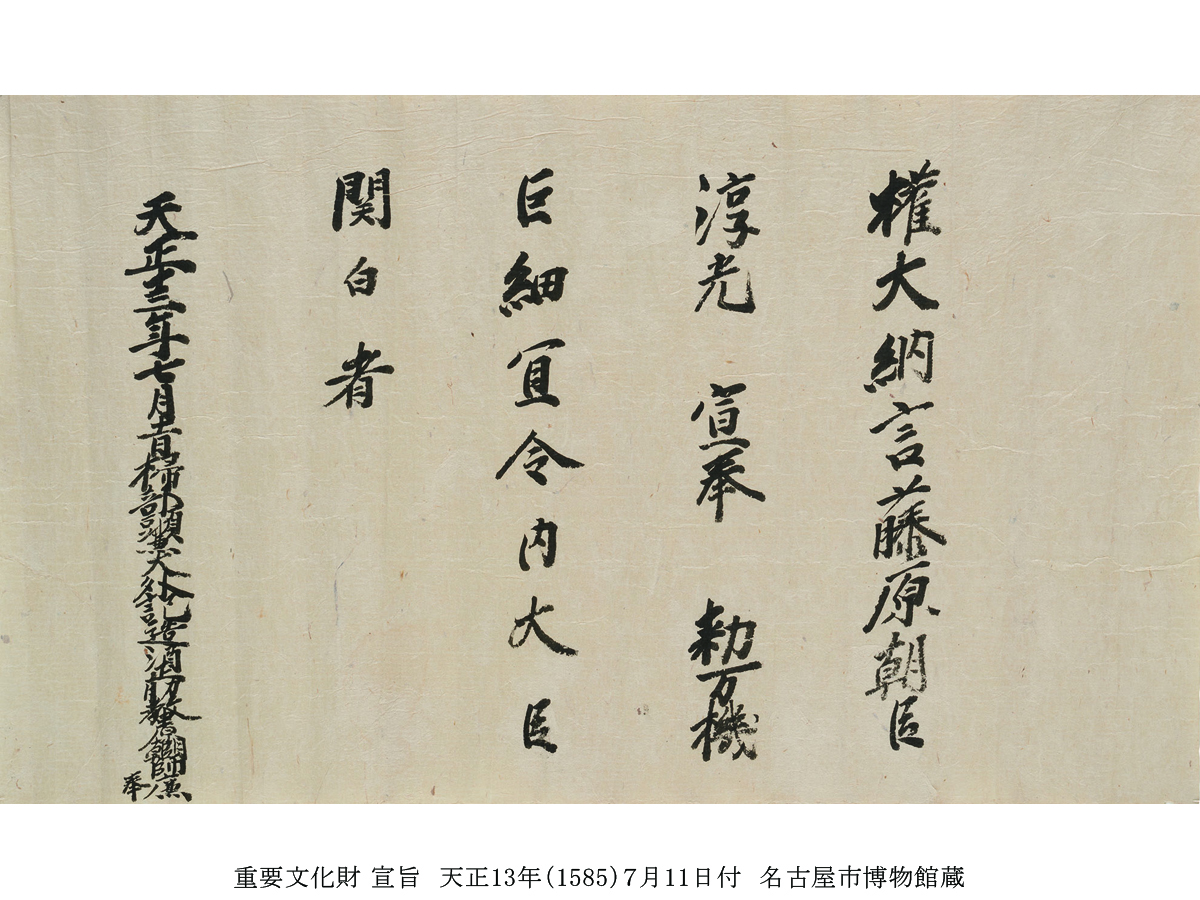 権大納言藤原朝臣
淳光 宣奉 勅万機
巨細宜令内大臣
関白者
天正十三年七月十一日掃部頭兼大外記造酒助教中原師廉
奉
重要文化財 宣旨 天正13年(1585)7月11日付 名古屋市博物館蔵